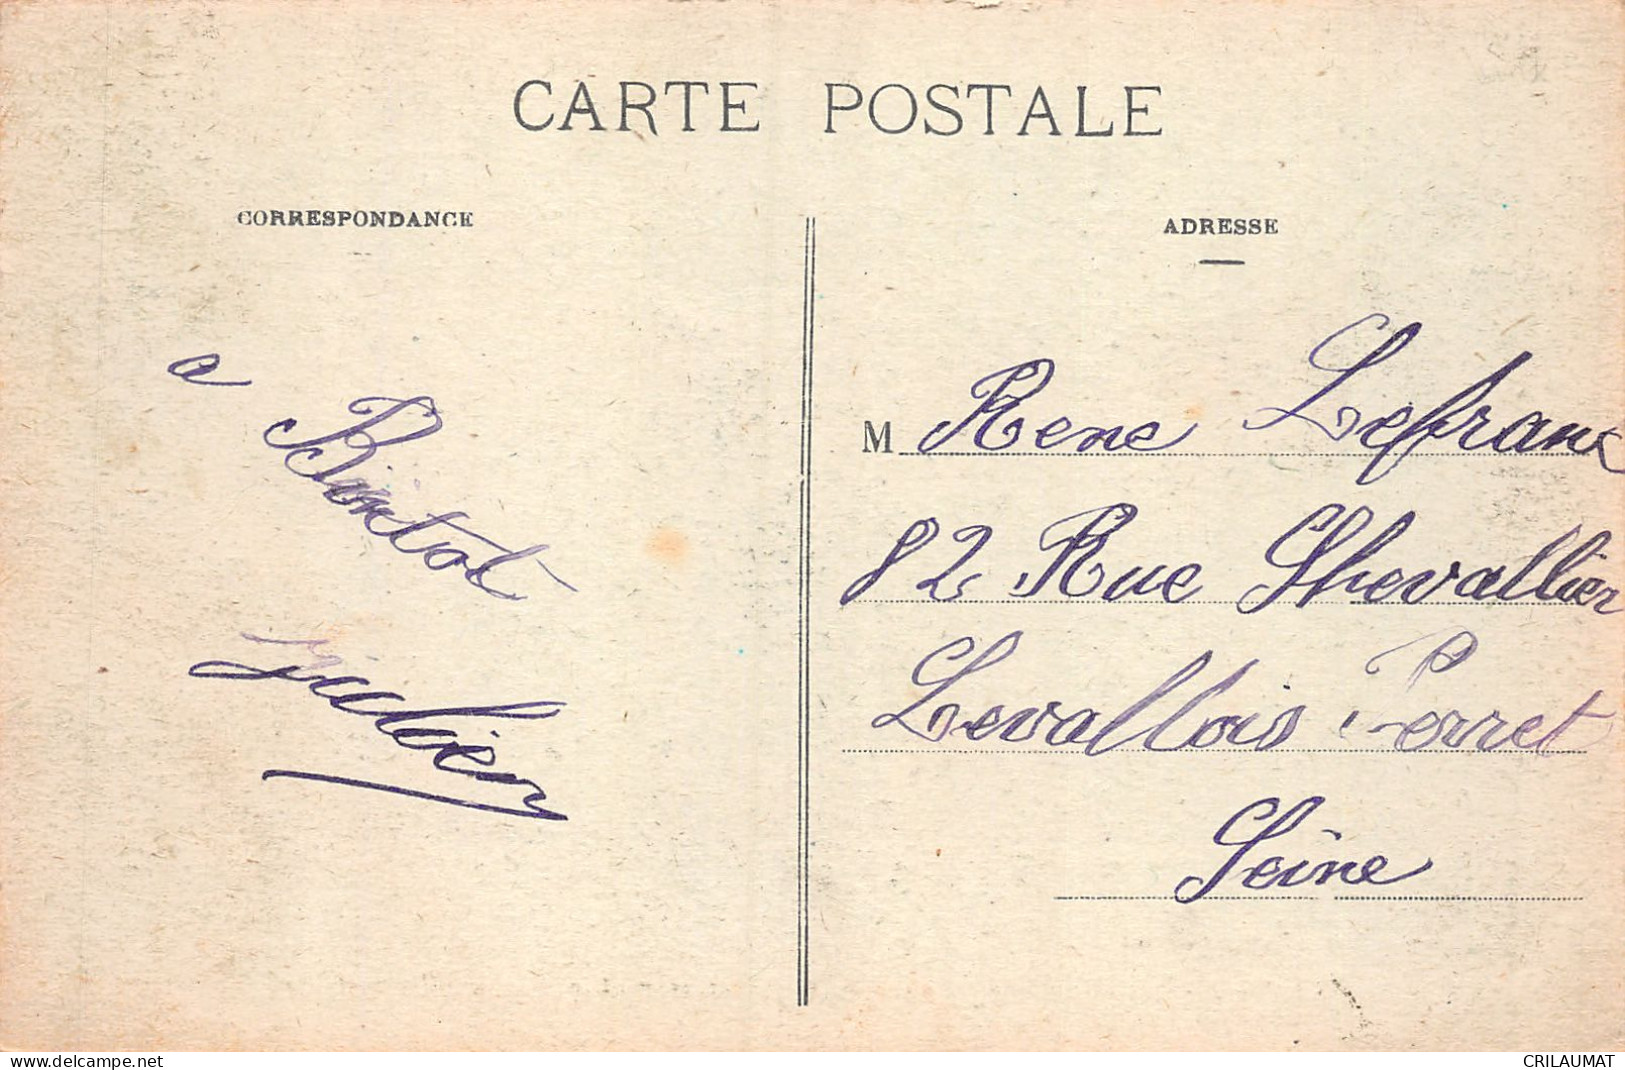 CARTE POSTALE
CORRESPONDANCE
a
Bientot
Julien
ADRESSE
M Rene Lefranc
82 Rue Chevallier
Levallois Perret
Seine
www.delcampe.net
CRILAUMAT